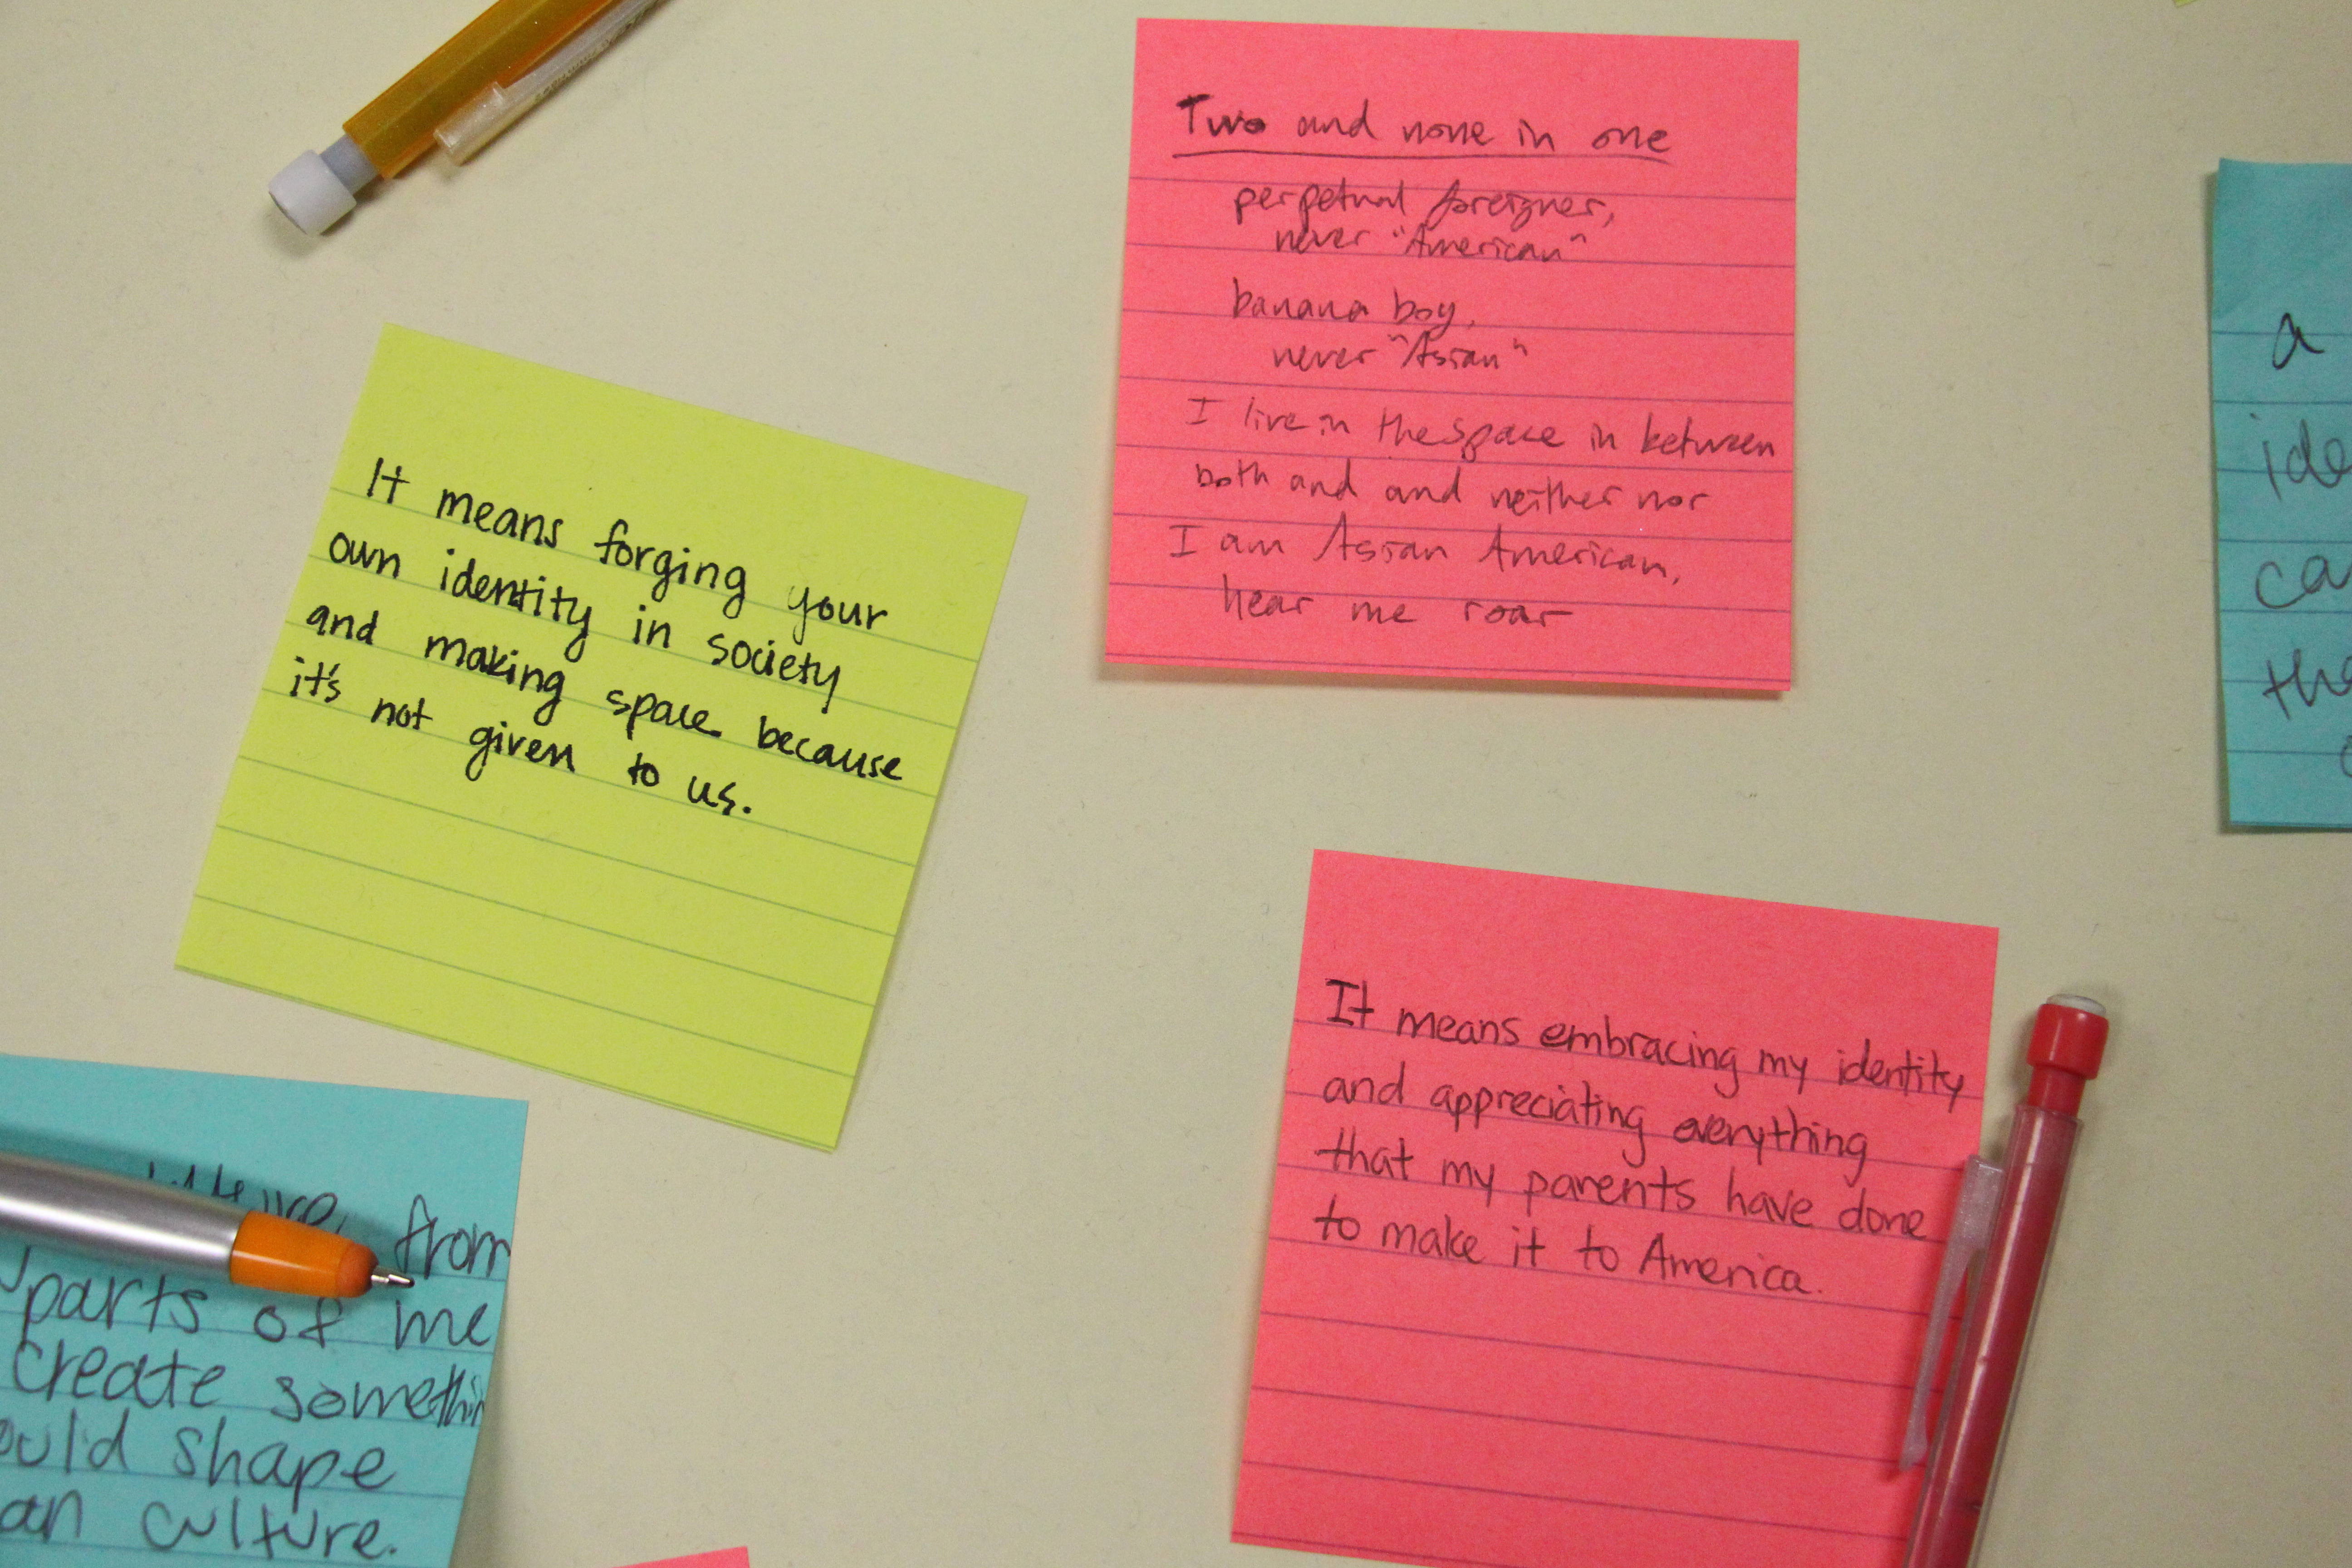 Two and none in one
perpetual foreigner,
never "American"
banana boy,
never "Asian"
I live in the space in between
both and and neither nor
I am Asian American,
hear me roar
It means forging your
own identity in society
and making space because
it's not given to us.
It means embracing my identity
and appreciating everything
that my parents have done
to make it to America.
from
parts of me
create
shape
culture.
a